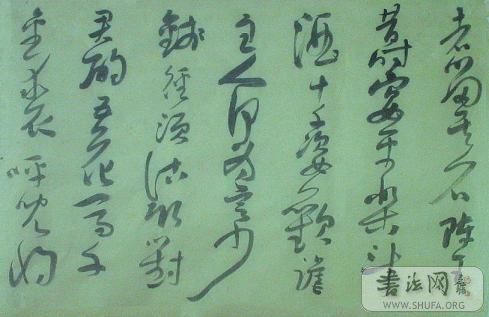 者留其名陳王
昔時宴平樂斗
酒十千恣歡謔
主人何為言少
錢徑須沽取對
君酌五花馬千
金裘呼兒將
书法网
WWW.SHUFA.ORG